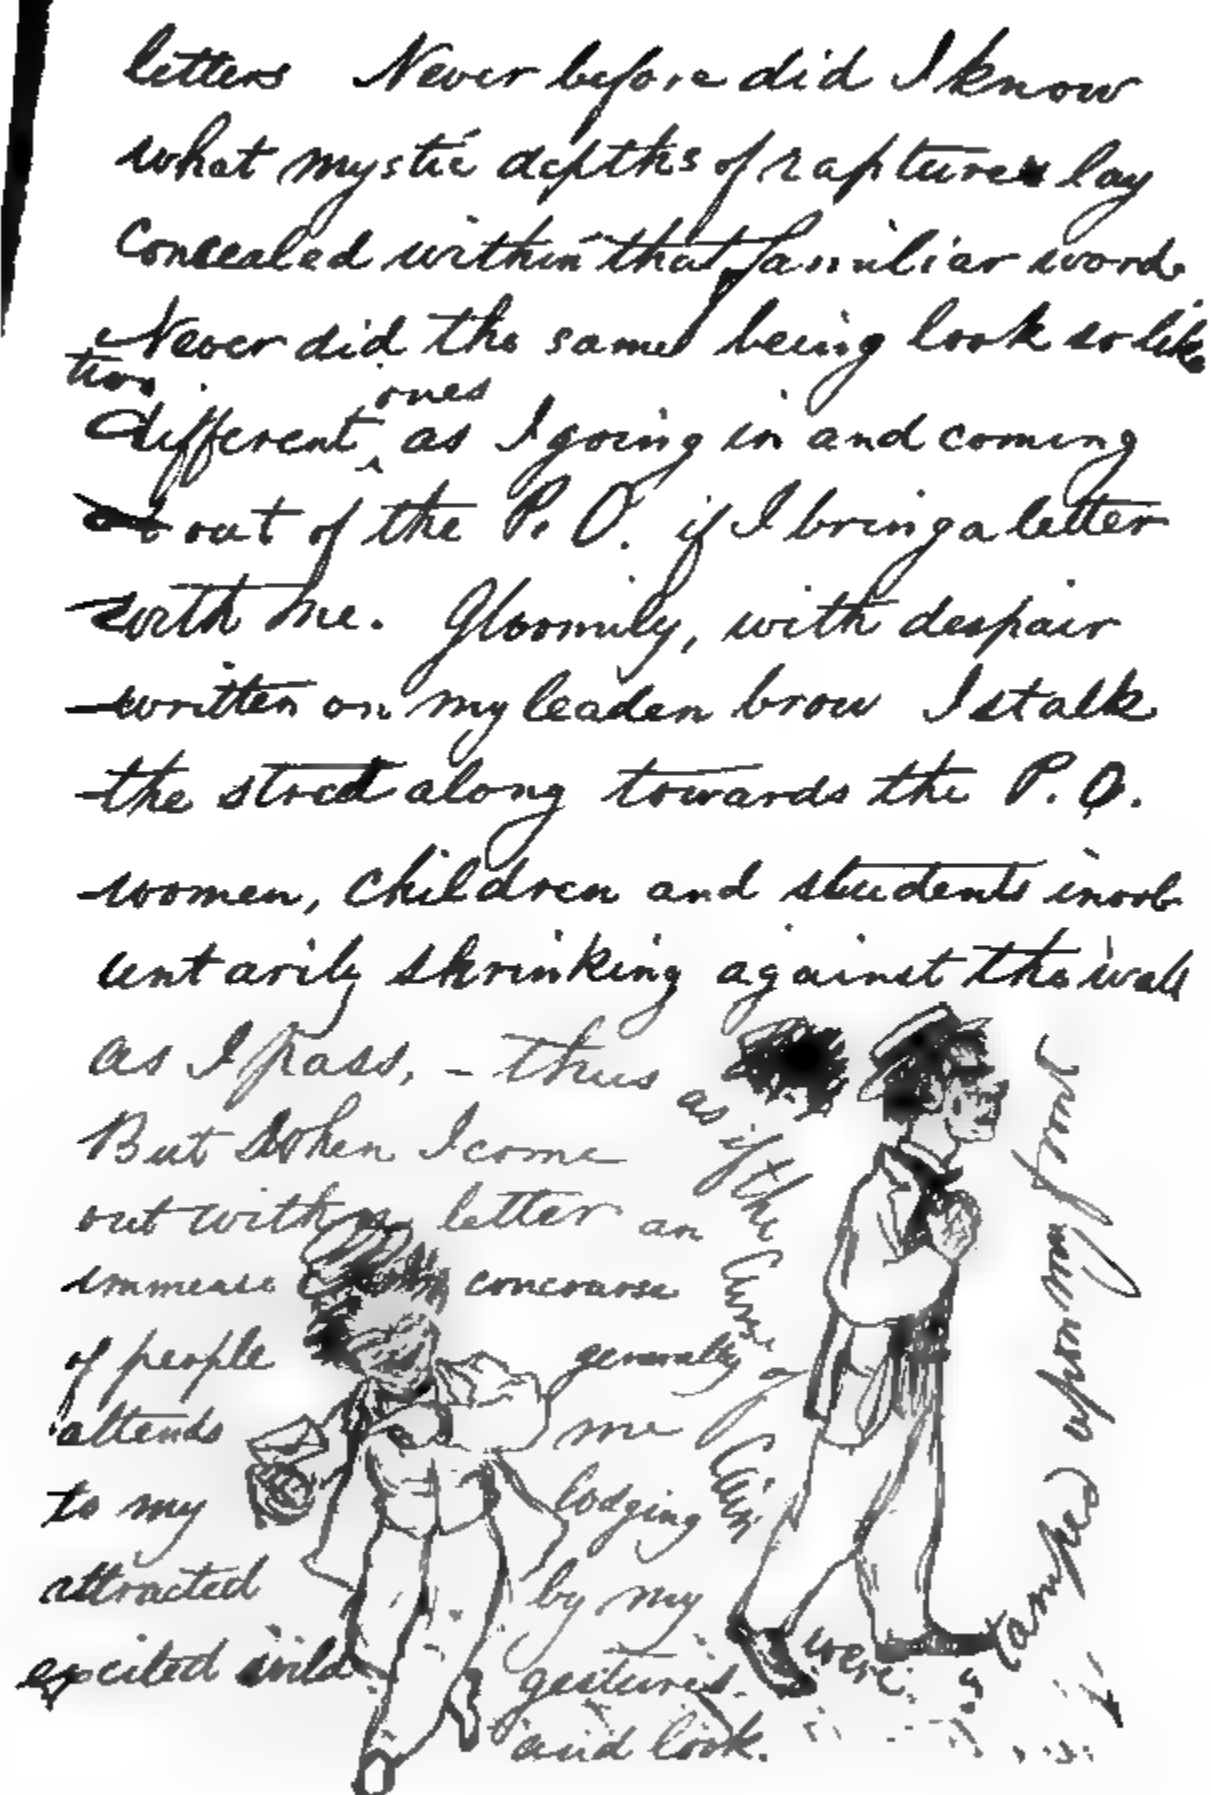 letters Never before did I know
what mystic depths of rapture lay
concealed within that familiar word.
Never did the same being look so like
two
different ones as I going in and coming
out of the P. O. if I bring a letter
with me. Gloomily, with despair
written on my leaden brow I stalk
the street along towards the P. O.
women, children and students invol-
untarily shrinking against the wall
as I pass, – thus
as if the Curse of Cain were stamped upon my front
But when I come
out with a letter an
immense concourse
of people generally
attends me
to my lodging
attracted by my
excited wild gestures
and look.